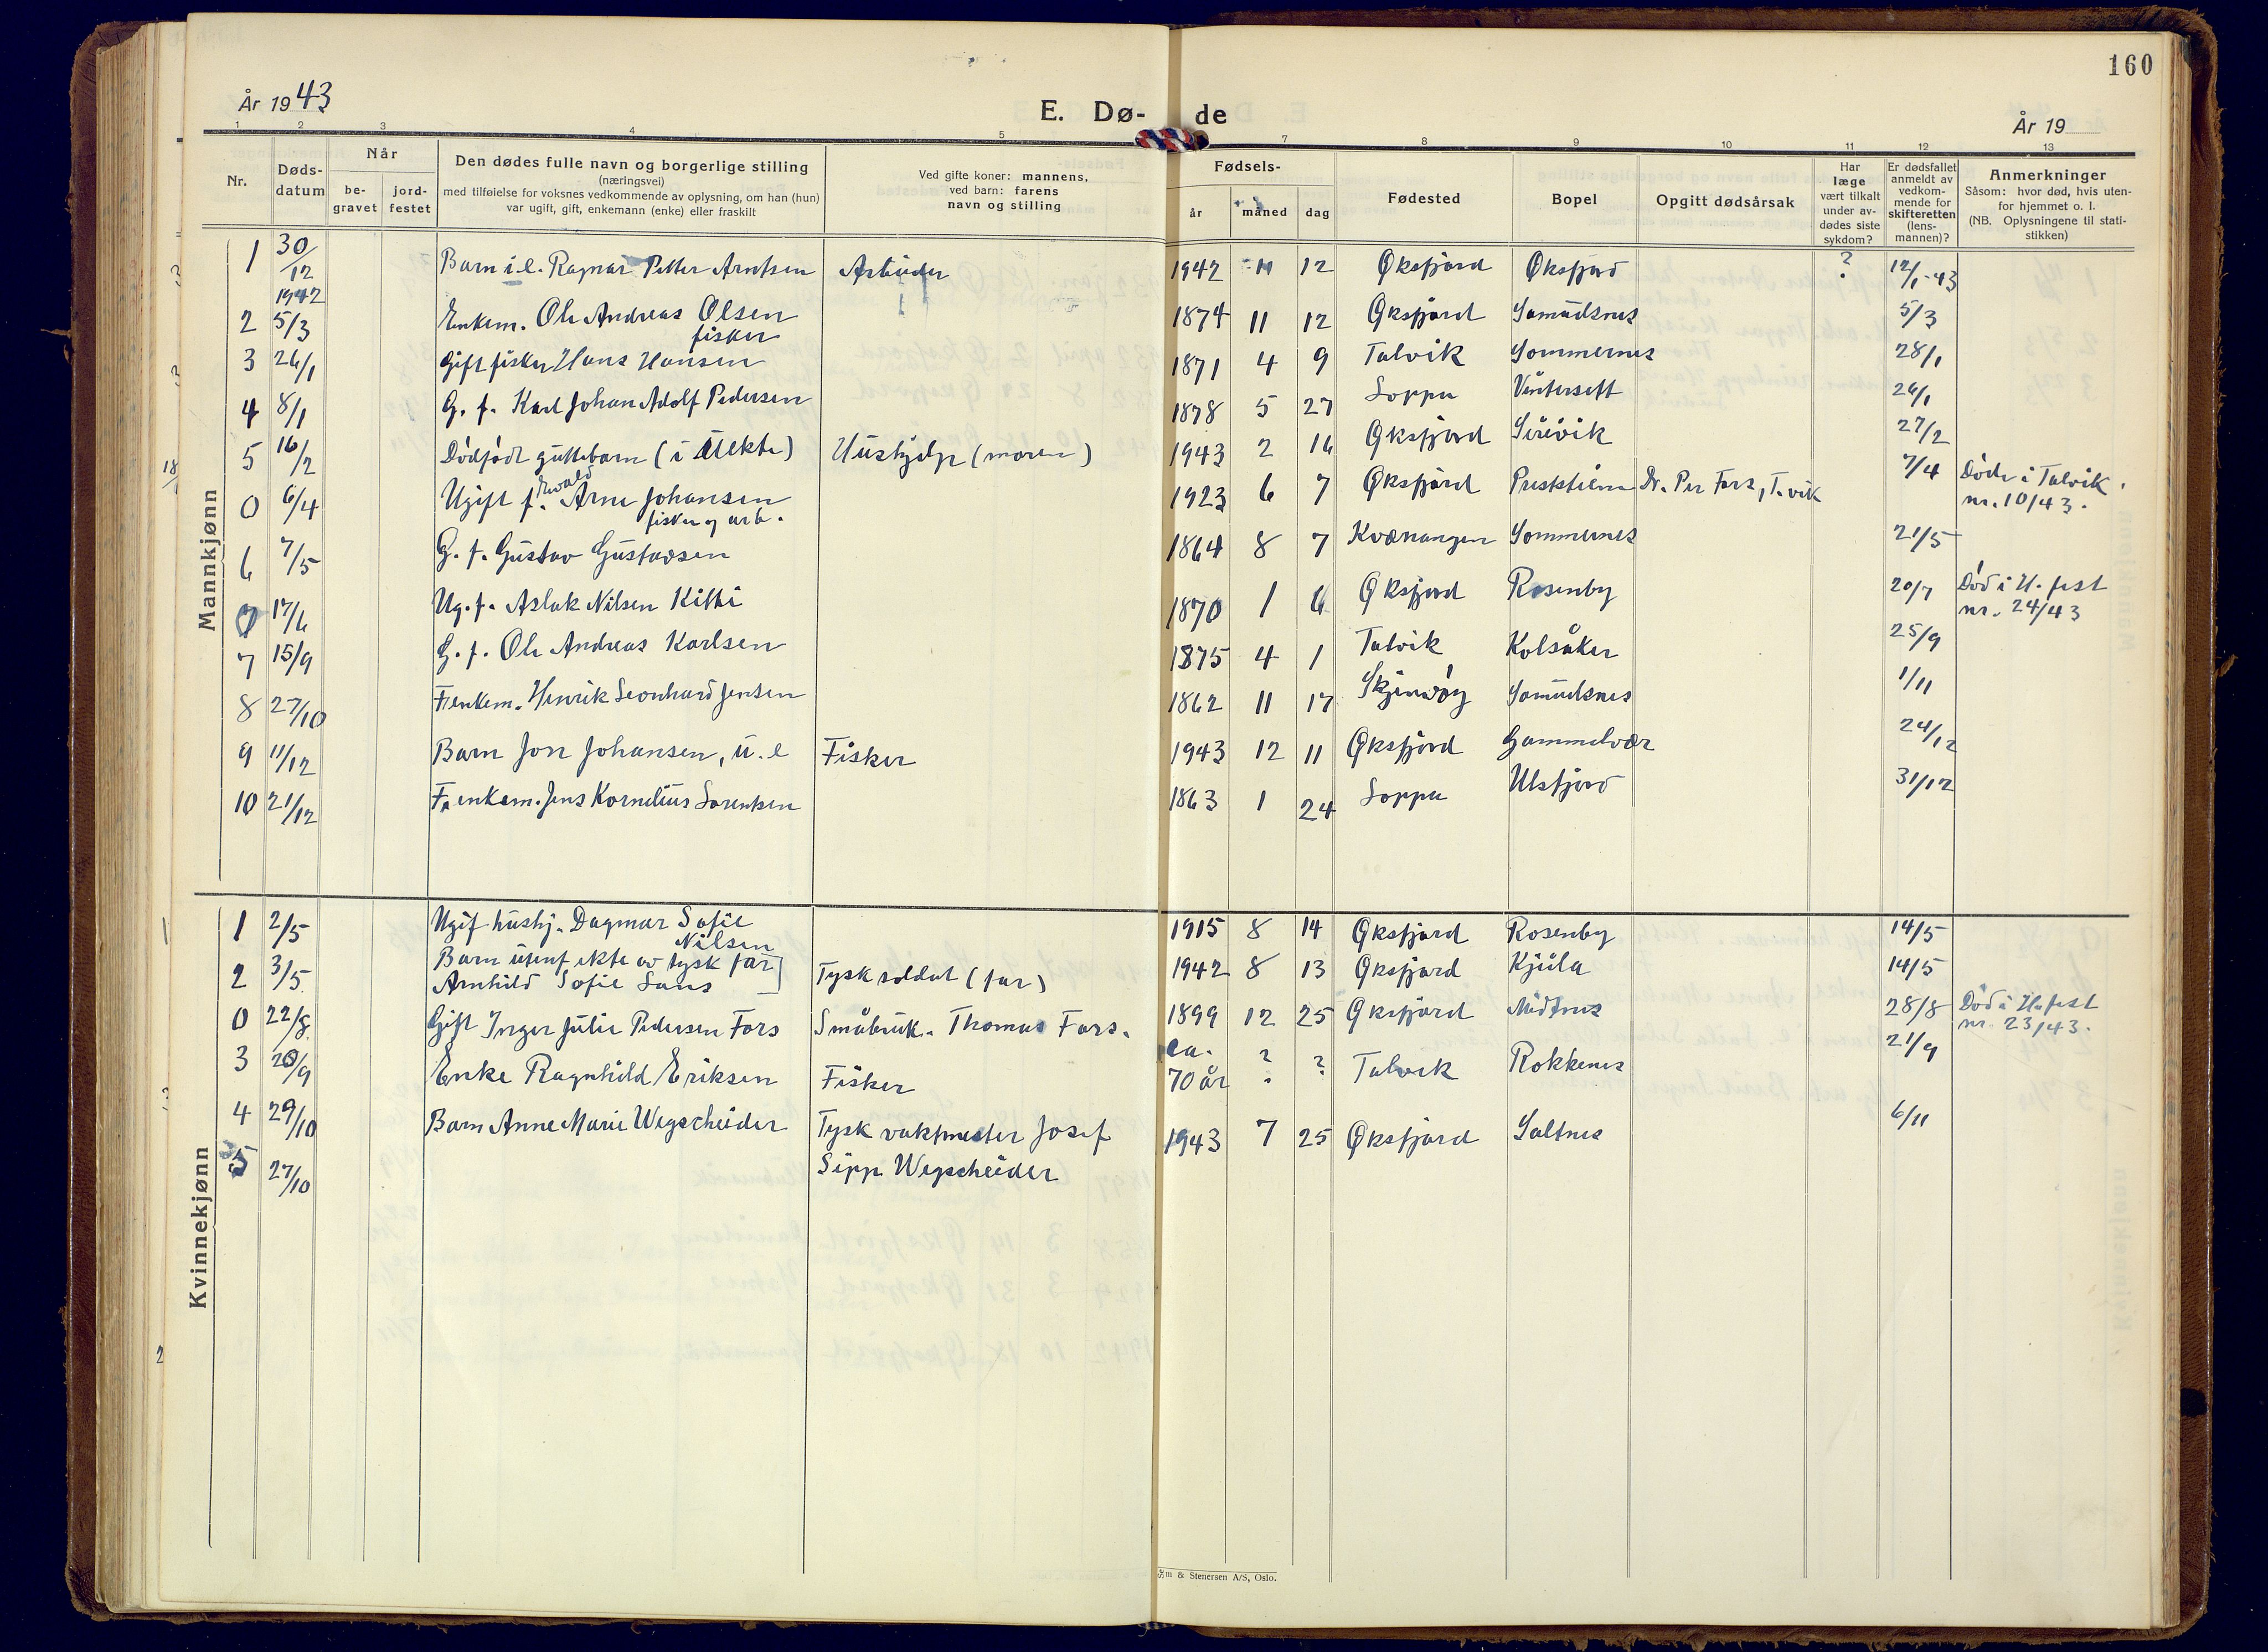 160
År 1943
E. Dø- de
År 19
1 2 3 4 5 7 8 9 10 11 12 13
Nr.
Døds-
datum
Når
be-
gravet
jord-
festet
Den dødes fulle navn og borgerlige stilling
(næringsvei)
med tilføielse for voksnes vedkommende av oplysning, om han (hun)
var ugift, gift, enkemann (enke) eller fraskilt
Ved gifte koner: mannens,
ved barn: farens
navn og stilling
Fødsels-
år måned dag
Fødested
Bopel
Opgitt dødsårsak
Har
læge
vært tilkalt
under av-
dødes siste
sykdom?
Er dødsfallet
anmeldt av
vedkom-
mende for
skifteretten
(lens-
mannen)?
Anmerkninger
Såsom: hvor død, hvis uten-
for hjemmet o. l.
(NB. Oplysningene til stati-
stikken)
Mannkjønn
1 30/12 1942 Barn i.e. Ragnar Petter Arntsen Arbeider 1942 11 12 Øksfjord Øksfjord ? 12/1-43
2 5/3 Enkem. Ole Andreas Olsen 1874 11 12 Øksfjord Samuelsnes 5/3
fisker
3 26/1 Gift fisker Hans Hansen 1871 4 9 Talvik Sommernes 28/1
4 8/1 G. f. Karl Johan Adolf Pedersen 1878 5 27 Loppa Vintersett 26/1
5 16/2 Dødfødt guttebarn (i uekte) Hushjelp (moren) 1943 2 16 Øksfjord 27/2
0 6/4 Ugift f. Ewald Arne Johansen 1923 6 7 Øksfjord Dr. Per Fors, T.vik 7/4 Døde i Talvik
fisker og arb. nr. 10/43.
6 7/5 G. f. Gustav Gustavsen 1864 8 7 Kvænangen Sommernes 21/5
0 17/6 Ug. f. Aslak Nilsen Kitti 1870 1 6 Øksfjord Rosenby 20/7 Død i H.fest
nr. 24/43
7 15/9 G. f. Ole Andreas Karlsen 1875 4 1 Talvik Kolsåker 25/9
8 27/10 F. enkem. Henrik Leonhard Jensen 1862 11 17 Samuelsnes 1/11
9 11/12 Barn Jon Johansen, u.e Fisker 1943 12 11 Øksfjord Gammelvær 24/12
10 21/12 F. enkem. Jens Kornelius Sørensen 1863 1 24 Loppa Ulsfjord 31/12
Kvinnekjønn
1 2/5 Ugif hushj. Dagmar Sofie 1915 8 14 Øksfjord Rosenby 14/5
Nilsen
2 3/5 Barn utenf ekte av tysk far] Tysk soldat (far) 1942 8 13 Øksfjord Kjula 14/5
Arnhild Sofie Lans
0 22/8 Gift Inger Julie Pedersen Fors Småbruk. Thomas Fors. 1899 12 25 Øksfjord Midtnes 28/8 Død i H.fest
nr. 23/43.
3 20/9 Enke Ragnhild Eriksen Fisker ca. 70 år ? ? Talvik Rokkenes 21/9
4 29/10 Barn Anne Marie Wegscheider Tysk vaktmester Josef 1943 7 25 Øksfjord Saltnes 6/11
5 27/10 Sipp Wegscheider
& Stenersen A/S, Oslo.